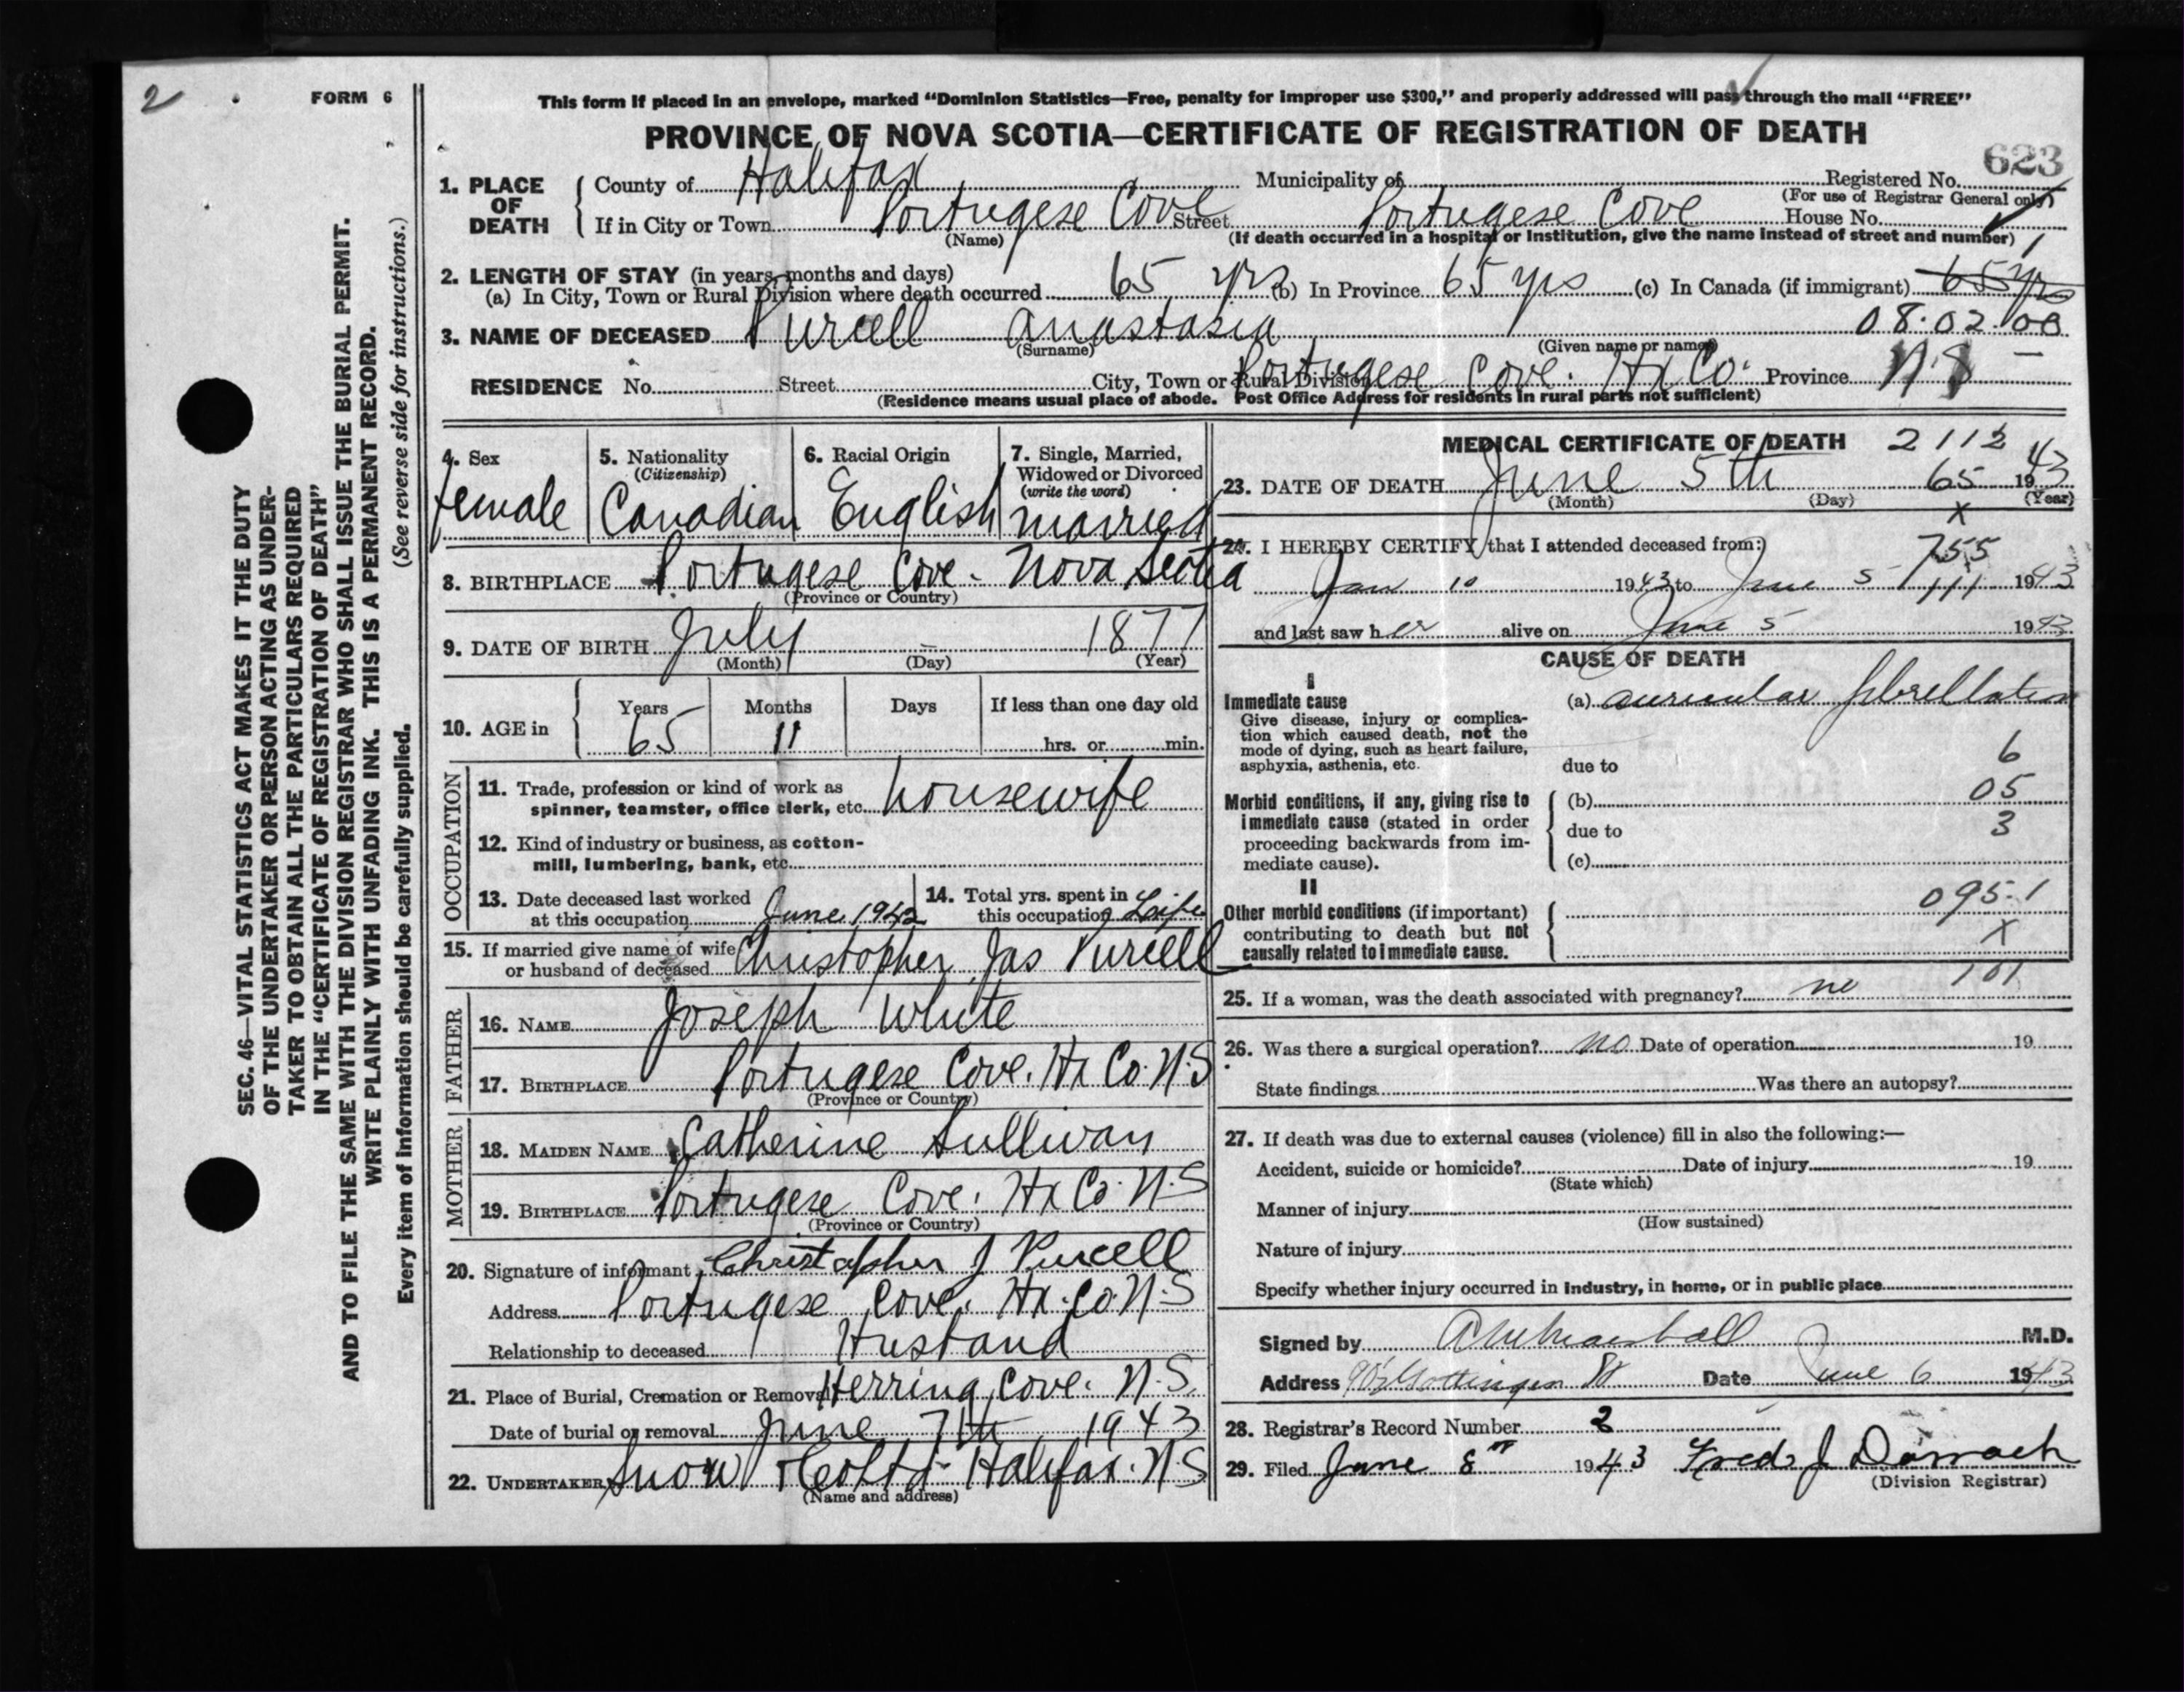 2
FORM 6
This form if placed in an envelope, marked “Dominion Statistics—Free, penalty for improper use $300,” and properly addressed will pass through the mail “FREE”
PROVINCE OF NOVA SCOTIA—CERTIFICATE OF REGISTRATION OF DEATH
623
1. PLACE OF DEATH County of Halifax Municipality of Registered No.
(For use of Registrar General only)
If in City or Town Portugese Cove Street Portugese Cove House No.
(Name) (If death occurred in a hospital or institution, give the name instead of street and number) 1
2. LENGTH OF STAY (in years, months and days)
(a) In City, Town or Rural Division where death occurred 65 yrs (b) In Province 65 yrs (c) In Canada (if immigrant) 65 yrs
3. NAME OF DECEASED Purcell Anastasia 08.02.00
(Surname) (Given name or names)
RESIDENCE No. Street City, Town or Rural Division Portugese Cove. Hx Co. Province N.S —
(Residence means usual place of abode. Post Office Address for residents in rural parts not sufficient)
4. Sex female
5. Nationality (Citizenship) Canadian
6. Racial Origin English
7. Single, Married, Widowed or Divorced (write the word) married
8. BIRTHPLACE Portugese Cove. Nova Scotia
(Province or Country)
9. DATE OF BIRTH July – 1877
(Month) (Day) (Year)
10. AGE in Years 65 Months 11 Days If less than one day old hrs. or min.
OCCUPATION
11. Trade, profession or kind of work as spinner, teamster, office clerk, etc. housewife
12. Kind of industry or business, as cotton-mill, lumbering, bank, etc.
13. Date deceased last worked at this occupation June 1942
14. Total yrs. spent in this occupation Life
15. If married give name of wife or husband of deceased Christopher Jas Purcell
FATHER
16. NAME Joseph White
17. BIRTHPLACE Portugese Cove. Hx Co. N.S
(Province or Country)
MOTHER
18. MAIDEN NAME Catherine Sullivan
19. BIRTHPLACE Portugese Cove. Hx Co. N.S
(Province or Country)
20. Signature of informant Christopher J Purcell
Address Portugese Cove. Hx. Co. N.S
Relationship to deceased Husband
21. Place of Burial, Cremation or Removal Herring Cove. N.S.
Date of burial or removal June 7th 1943
22. UNDERTAKER Snow & Co Ltd Halifax. N.S
(Name and address)
MEDICAL CERTIFICATE OF DEATH 2112
23. DATE OF DEATH June 5th 65 1943
(Month) (Day) (Year)
X
24. I HEREBY CERTIFY that I attended deceased from:
755
Jan 10 1943 to June 5 111 1943
and last saw her alive on June 5 1943
CAUSE OF DEATH
I
Immediate cause
Give disease, injury or complication which caused death, not the mode of dying, such as heart failure, asphyxia, asthenia, etc.
(a) auricular fibrellation
6
due to
Morbid conditions, if any, giving rise to immediate cause (stated in order proceeding backwards from immediate cause).
(b) 05
due to 3
(c)
II
Other morbid conditions (if important) contributing to death but not causally related to immediate cause.
095.1
X
101
25. If a woman, was the death associated with pregnancy? no
26. Was there a surgical operation? no Date of operation 19
State findings Was there an autopsy?
27. If death was due to external causes (violence) fill in also the following:—
Accident, suicide or homicide? Date of injury 19
(State which)
Manner of injury
(How sustained)
Nature of injury
Specify whether injury occurred in Industry, in home, or in public place
Signed by M.D.
Address Gottingen St Date June 6 1943
28. Registrar's Record Number 2
29. Filed June 8th 1943 Fred J Darrach
(Division Registrar)
SEC. 46—VITAL STATISTICS ACT MAKES IT THE DUTY
OF THE UNDERTAKER OR PERSON ACTING AS UNDER-
TAKER TO OBTAIN ALL THE PARTICULARS REQUIRED
IN THE “CERTIFICATE OF REGISTRATION OF DEATH”
AND TO FILE THE SAME WITH THE DIVISION REGISTRAR WHO SHALL ISSUE THE BURIAL PERMIT.
WRITE PLAINLY WITH UNFADING INK. THIS IS A PERMANENT RECORD.
Every item of information should be carefully supplied. (See reverse side for instructions.)